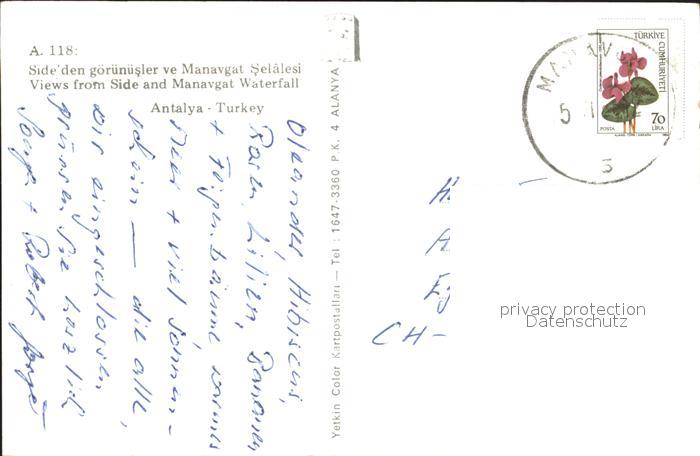 A. 118:
Side'den görünüşler ve Manavgat Şelâlesi
Views from Side and Manavgat Waterfall
Antalya - Turkey
Oleander, Hibiscus,
Rosen, Lilien, Bananen
+ Feigenbäume, warmes
Meer + viel Sonnen-
schein — die alle,
wir eingeschlossen
grüssen Sie herzlich
Yetkin Color Kartpostalları — Tel : 1647-3360 P.K. 4 ALANYA
MANAV
5
3
TÜRKİYE
CUMHURİYETİ
POSTA
70
LİRA
H.
A
E
CH-
privacy protection
Datenschutz